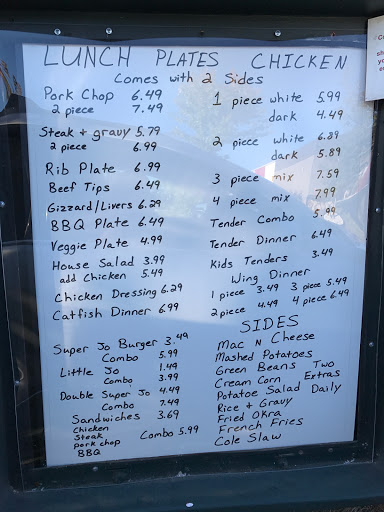 LUNCH PLATES CHICKEN
Comes with 2 Sides
Pork Chop 6.49
2 piece 7.49
Steak + gravy 5.79
2 piece 6.99
Rib Plate 6.99
Beef Tips 6.49
Gizzard/Livers 6.29
BBQ Plate 6.49
Veggie Plate 4.99
House Salad 3.99
add Chicken 5.49
Chicken Dressing 6.29
Catfish Dinner 6.99
Super Jo Burger 3.49
Combo 5.99
Little Jo 1.49
Combo 3.99
Double Super Jo 4.49
Combo 7.49
Sandwiches 3.69
Chicken
Steak
pork chop Combo 5.99
BBQ
1 piece white 5.99
dark 4.49
2 piece white 6.89
dark 5.89
3 piece mix 7.59
4 piece mix 7.99
Tender Combo 5.99
Tender Dinner 6.49
Kids Tenders 3.49
Wing Dinner
1 piece 3.49 3 piece 5.49
2 piece 4.49 4 piece 6.49
SIDES
Mac N Cheese
Mashed Potatoes
Green Beans Two
Cream Corn Extras
Potatoe Salad Daily
Rice + Gravy
Fried Okra
French Fries
Cole Slaw